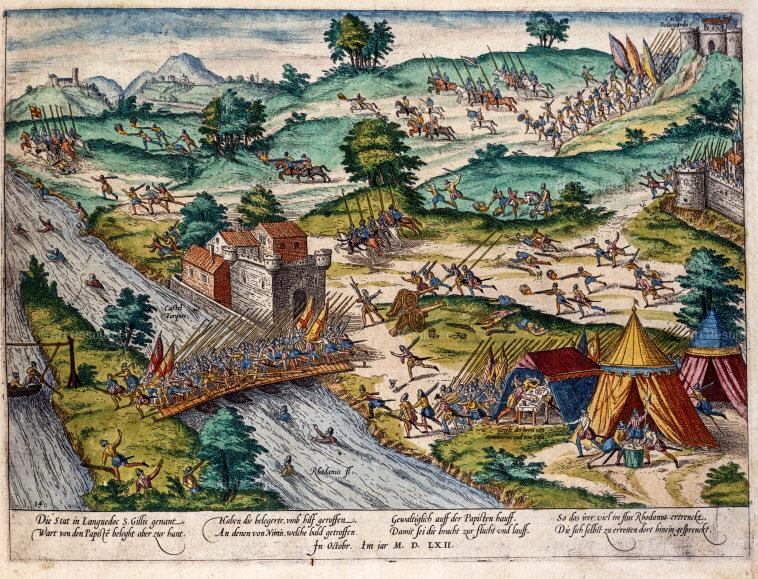 Castel
Bellegarde
Castel
Forques
Rhodanus fl.
14
Die Stat in Languedoc S. Gillis genant
Wart von den Papistē belegt aber zur hant.
Haben die belegerte, vmb hilf geroffen
An denen von Nimis, welche bald getroffen
Gewaltiglich auff der Papisten hauff.
Damit sei die bracht zur flucht vnd lauff.
So das irer viel im flus Rhodanus ertrenckt.
Die sich selbst zu erretten dort hinein gesprenckt.
In Octobr. Im iar M. D. LXII.